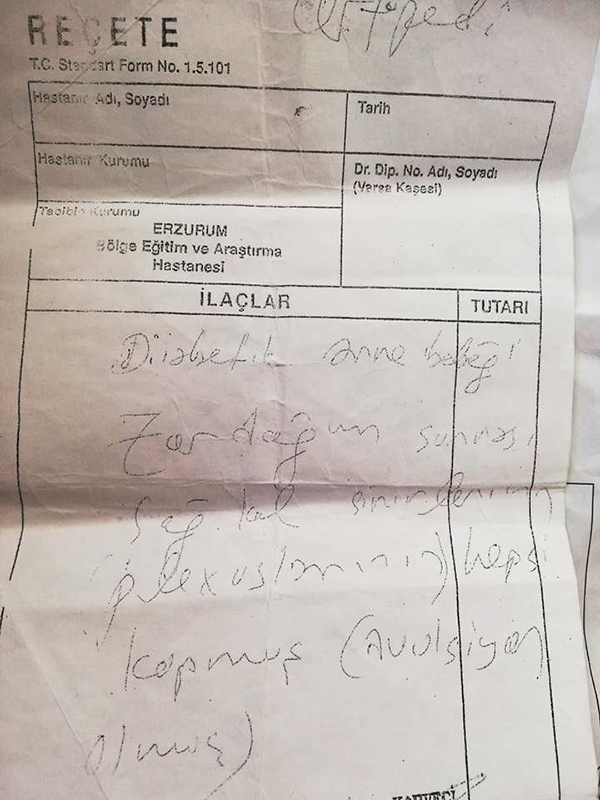 Ortopedi
REÇETE
T.C. Standart Form No. 1.5.101
Hastanın Adı, Soyadı
Tarih
Hastanın Kurumu
Dr. Dip. No. Adı, Soyadı
(Varsa Kaşesi)
Tabibin Kurumu
ERZURUM
Bölge Eğitim ve Araştırma
Hastanesi
İLAÇLAR
TUTARI
Diabetik anne bebeği
Zor doğum sonrası
Sağ kol sinirlerinin
(plexuslarının) hepsi
kopmuş (Avulsiyon
olmuş)
KAHVECİ